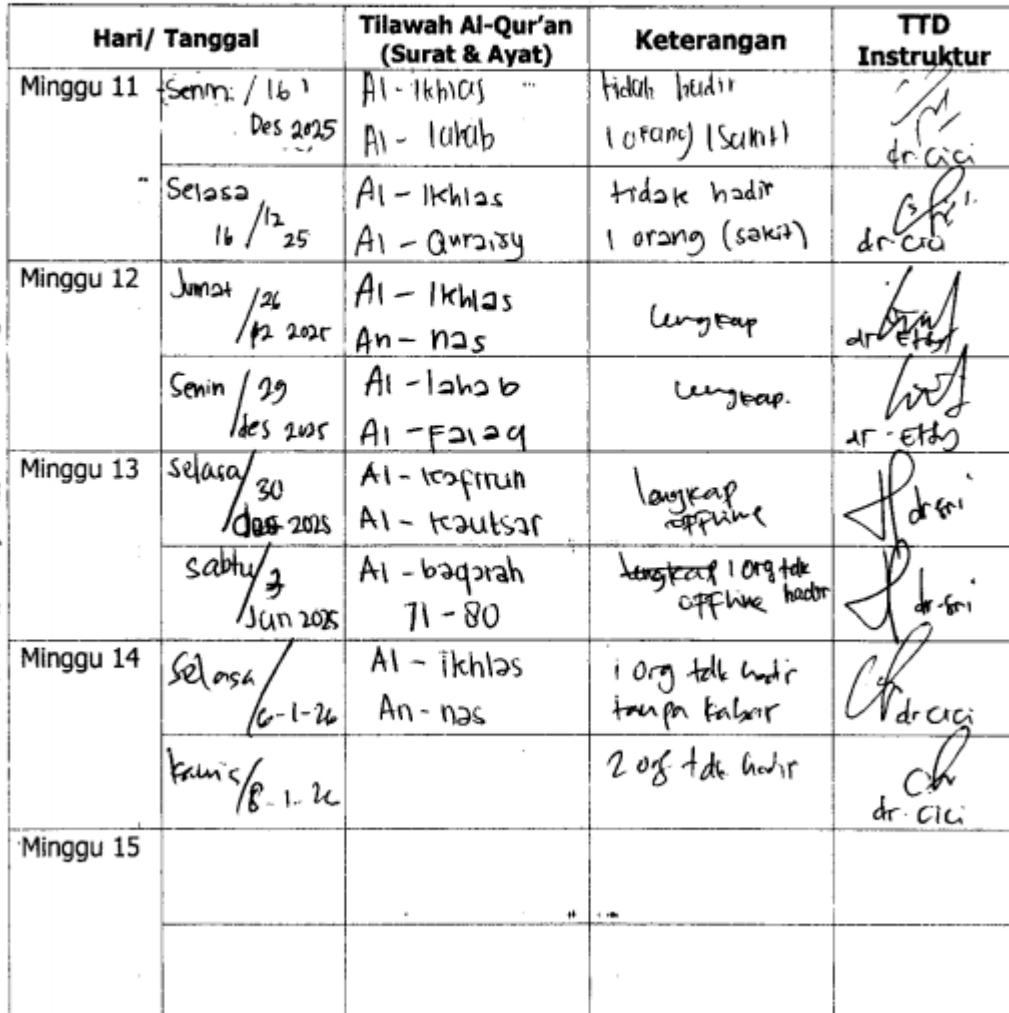 Hari/ Tanggal
Tilawah Al-Qur'an
(Surat & Ayat)
Keterangan
TTD
Instruktur
Minggu 11
Senin / 16
Des 2025
Al - Ikhlas
Al - lahab
tidak hadir
1 orang (sakit)
dr. cici
Selasa
16 / 12 25
Al - Ikhlas
Al - Quraisy
tidak hadir
1 orang (sakit)
dr. cici
Minggu 12
Jumat / 26
12 2025
Al - Ikhlas
An - nas
Lengkap
dr Etty
Senin / 29
des 2025
Al - lahab
Al - Falaq
Lengkap.
dr - Etty
Minggu 13
Selasa / 30
des 2025
Al - kafirun
Al - kautsar
lengkap
offline
dr sri
Sabtu / 3
Jan 2025
Al - baqarah
71 - 80
lengkap 1 org tdk
offline hadir
dr. sri
Minggu 14
Selasa
/ 6-1-26
Al - ikhlas
An - nas
1 org tdk hadir
tanpa kabar
dr cici
Kamis / 8-1-26
2 org tdk hadir
dr. cici
Minggu 15